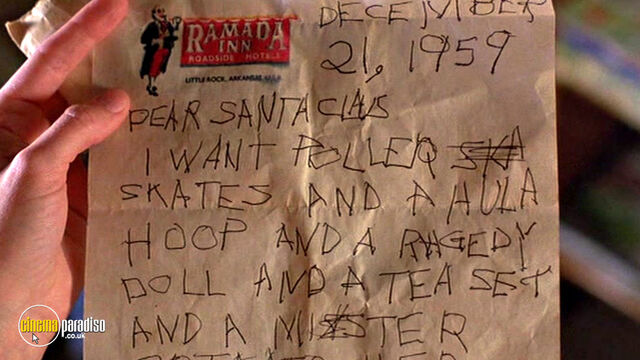 RAMADA
INN
ROADSIDE HOTELS
LITTLE ROCK, ARKANSAS U.S.A.
DECEMBER
21, 1959
DEAR SANTA CLAUS
I WANT ROLLER SKA
SKATES AND A HULA
HOOP AND A RAGEDY
DOLL AND A TEA SET
AND A MISTER
cinemaparadiso
.co.uk